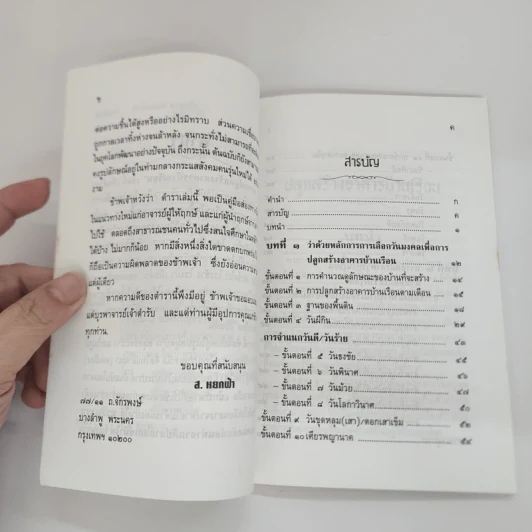 ข
ต่อความขึ้นได้สูงหรืออย่างไรมิทราบ ส่วนความเชื่อ
ถูกกาลเวลาทิ้งห่างจนล้าหลัง จนกระทั่งไม่สามารถ
ในยุคโลกพัฒนาอย่างปัจจุบัน ถึงกระนั้น ต้นฉบับก็ยัง
คงรูปลักษณ์อยู่ในท่ามกลางกระแสสังคมคนรุ่นใหม่ได้
งาม
ข้าพเจ้าหวังว่า ตำราเล่มนี้ พอเป็นคู่มือ
ในแนวทางใหม่แก่อาจารย์ผู้ให้ฤกษ์ และแก่ผู้นำฤกษ์
ไปใช้ ตลอดถึงสาธารณชนคนทั่วไปซึ่งสนใจศึกษา
ได้บ้าง ไม่มากก็น้อย หากมีสิ่งหนึ่งสิ่งใดขาดตกบกพร่อง
ก็ถือเป็นความผิดพลาดของข้าพเจ้า ซึ่งยังอ่อนความ
แต่ผู้เดียว
หากความดีของตำรานี้พึงมีอยู่ ข้าพเจ้าขอมอบ
แด่บูรพาจารย์เจ้าตำรับ และแด่ท่านผู้มีอุปการคุณ
ทุกท่าน
ขอบคุณที่สนับสนุน
ส. หยกฟ้า
๘๗/๑๑ ถ.จักรพงษ์
บางลำพู พระนคร
กรุงเทพฯ ๑๐๒๐๐
ค
สารบัญ
คำนำ ก
สารบัญ ค
บทนำ ๑
บทที่ ๑ ว่าด้วยหลักการการเลือกวันมงคลเพื่อการ
ปลูกสร้างอาคารบ้านเรือน ๑๒
ขั้นตอนที่ ๑ การคำนวณดูลักษณะของบ้านที่จะสร้าง ๑๔
ขั้นตอนที่ ๒ การปลูกสร้างอาคารบ้านเรือนตามเดือน ๑๕
ขั้นตอนที่ ๓ ฐานของพื้นดิน ๑๘
ขั้นตอนที่ ๔ วันผีกิน ๒๙
การจำแนกวันดี/วันร้าย ๔๓
- ขั้นตอนที่ ๕ วันธงชัย ๔๕
- ขั้นตอนที่ ๖ วันพินาศ ๔๖
- ขั้นตอนที่ ๗ วันม้วย ๔๗
- ขั้นตอนที่ ๘ วันโลกาวินาศ ๕๐
ขั้นตอนที่ ๙ วันขุดหลุม(เสา)/ตอกเสาเข็ม ๕๒
ขั้นตอนที่ ๑๐ เศียรพญานาค ๕๔